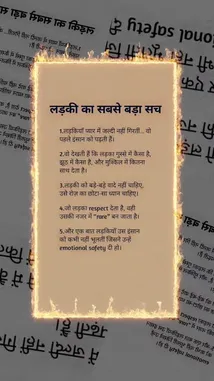 लड़की का सबसे बड़ा सच
1.लड़कियाँ प्यार में जल्दी नहीं गिरतीं... वो
पहले इंसान को पढ़ती हैं।
2.वो देखती हैं कि लड़का गुस्से में कैसा है,
झूठ में कैसा है, और मुश्किल में कितना
साथ देता है।
3.लड़की को बड़े-बड़े वादे नहीं चाहिए,
उसे रोज़ का छोटा-सा ध्यान चाहिए।
4.जो लड़का respect देता है, वही
उसकी नजर में “rare” बन जाता है।
5.और एक बात लड़कियाँ उस इंसान
को कभी नहीं भूलतीं जिसने उन्हें
emotional safety दी हो।